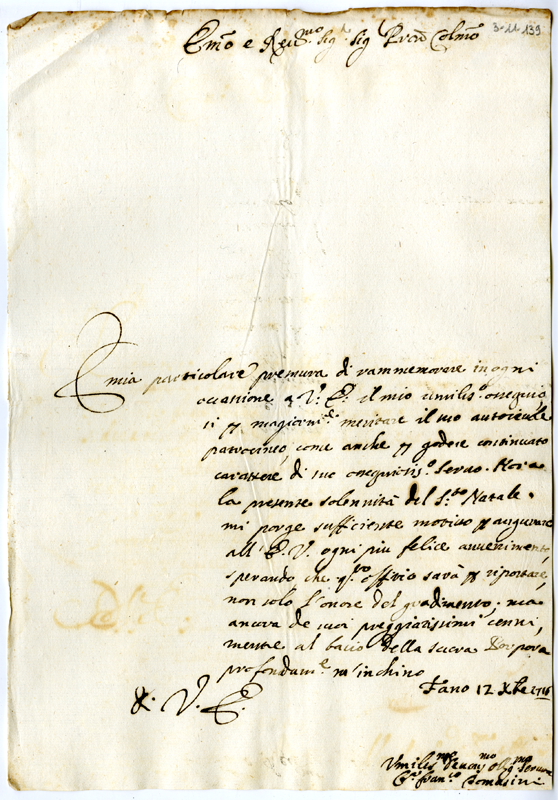 3-11 139
Em̃o e Reu.mo Sig.r Sig.r Prõn Colmo
È mia particolare premura di rammemorare in ogni
occasione a V. E. il mio umilis.o ossequio,
si p magiorm.te meritare il suo autoreuole
patrocineo, come anche p godere continuato
carattere di suo ossequiosis.o Seruo. Hora
la presente solennità del S.to Natale
mi porge sufficiente motiuo p augurare
all' E. V. ogni piu felice auuenimento,
sperando che q.to offitio sarà p riportare,
non solo l'onore del gradimento, ma
ancora de suoi preggiatissimi cenni,
mentre al bacio della sacra Porpora
profondam.e m'inchino
Fano 12 Xbre
D. V. E.
Umilis.mo Deuo.mo Obg.mo Seruore
Fran.co Tomasini